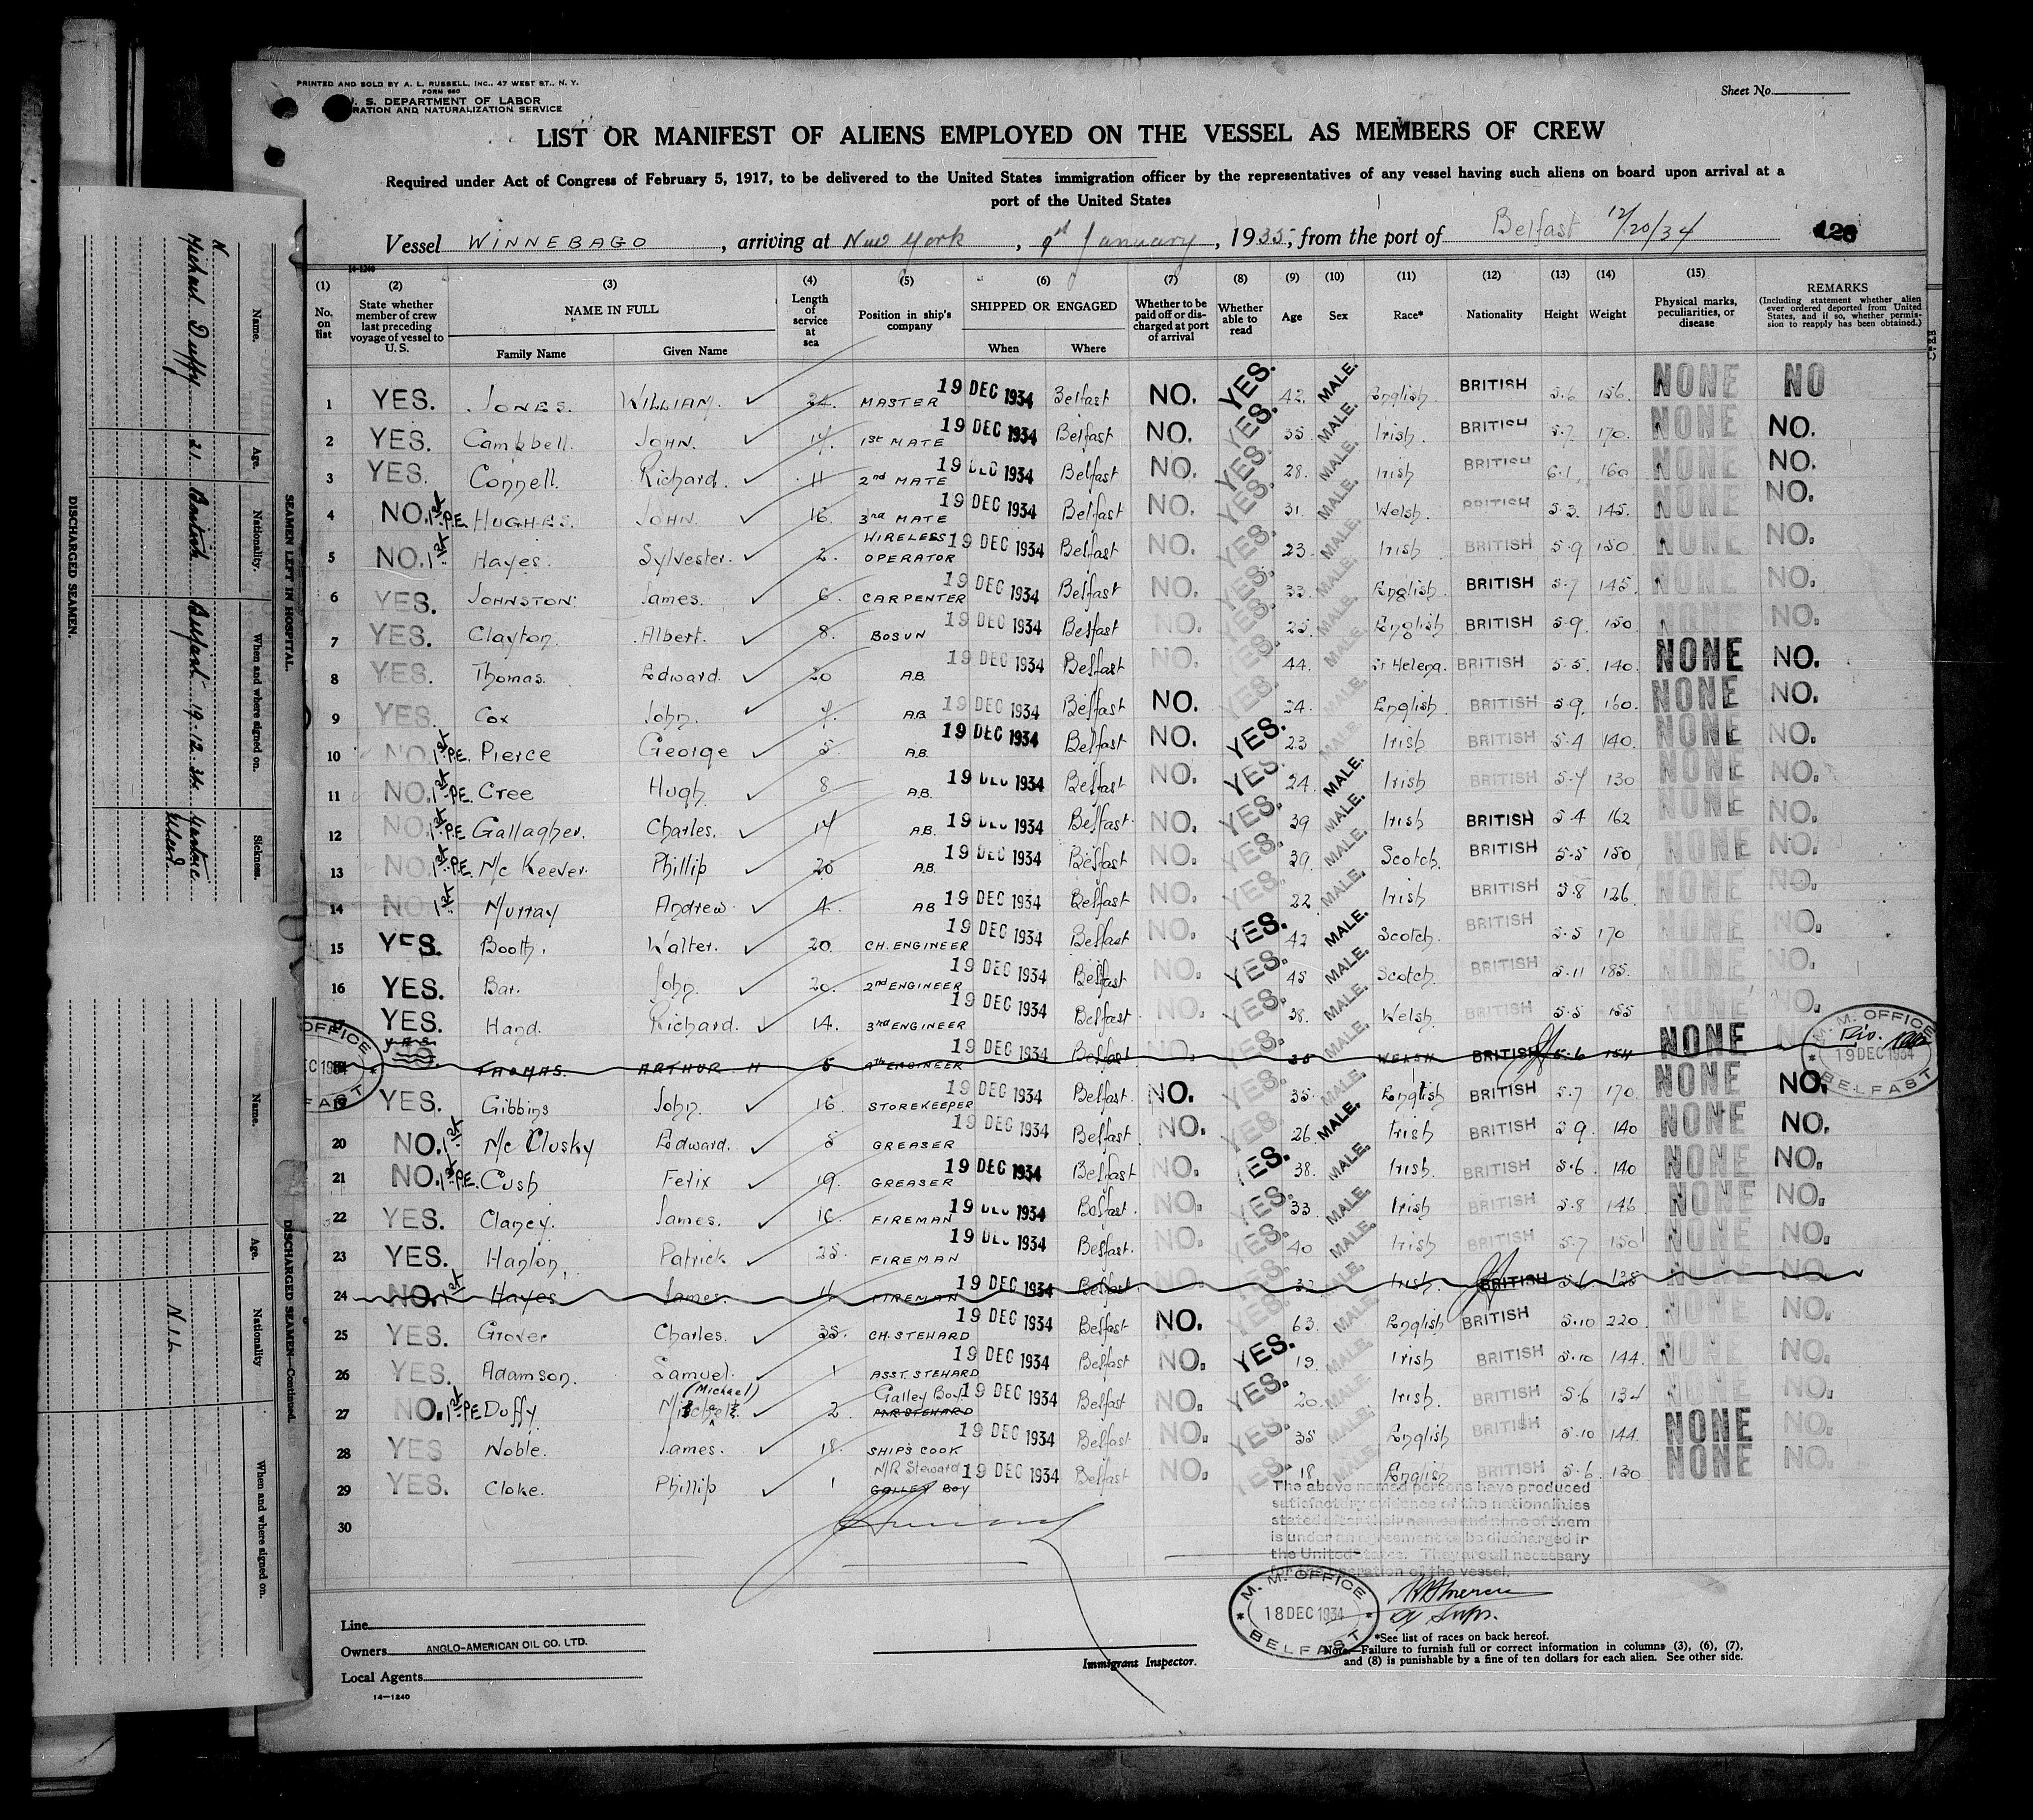 PRINTED AND SOLD BY A. L. RUSSELL, INC., 47 WEST ST., N. Y.
FORM 680
U. S. DEPARTMENT OF LABOR
RATION AND NATURALIZATION SERVICE
Sheet No.
LIST OR MANIFEST OF ALIENS EMPLOYED ON THE VESSEL AS MEMBERS OF CREW
Required under Act of Congress of February 5, 1917, to be delivered to the United States immigration officer by the representatives of any vessel having such aliens on board upon arrival at a
port of the United States
Vessel WINNEBAGO, arriving at New York, 9th January, 1935, from the port of Belfast 12/20/34 128
14-1240
(1) (2) (3) (4) (5) (6) (7) (8) (9) (10) (11) (12) (13) (14) (15) REMARKS
No. on list State whether member of crew last preceding voyage of vessel to U. S. NAME IN FULL Family Name Given Name Length of service at sea Position in ship's company SHIPPED OR ENGAGED When Where Whether to be paid off or discharged at port of arrival Whether able to read Age Sex Race* Nationality Height Weight Physical marks, peculiarities, or disease (Including statement whether alien ever ordered deported from United States, and if so, whether permission to reapply has been obtained.)
1 YES. JONES. WILLIAM. 24. MASTER 19 DEC 1934 Belfast NO. YES. 42. MALE. English. BRITISH 5.6 156. NONE NO
2 YES. Campbell. JOHN. 17. 1st MATE 19 DEC 1934 Belfast NO. YES. 35. MALE. Irish. BRITISH 5.7 170. NONE NO.
3 YES. Connell. Richard. 11 2nd MATE 19 DEC 1934 Belfast NO. YES. 28. MALE. Irish BRITISH 6.1 160 NONE NO.
4 NO. 1st P.E. HUGHES. JOHN. 16. 3rd MATE 19 DEC 1934 Belfast NO. YES. 31. MALE. Welsh. BRITISH 5.3. 145. NONE NO.
5 NO. 1st Hayes. Sylvester. 2. WIRELESS OPERATOR 19 DEC 1934 Belfast NO. YES. 23. MALE. Irish BRITISH 5.9 150 NONE NO.
6 YES. JOHNSTON. James. 6. CARPENTER 19 DEC 1934 Belfast NO. YES. 33. MALE. English. BRITISH 5.7 145. NONE NO.
7 YES. Clayton. Albert. 8. BOSUN 19 DEC 1934 Belfast NO. YES. 25. MALE. English BRITISH 5.9. 150. NONE NO.
8 YES. Thomas. Edward. 20 A.B. 19 DEC 1934 Belfast NO. YES. 44. MALE. St Helena. BRITISH 5.5. 140. NONE NO.
9 YES. Cox John. 7. A.B. 19 DEC 1934 Belfast NO. YES. 24. MALE. English. BRITISH 5.9. 160. NONE NO.
10 NO. 1st P.E. Pierce George 5. A.B. 19 DEC 1934 Belfast NO. YES. 23 MALE. Irish BRITISH 5.4 140. NONE NO.
11 NO. 1st P.E. Cree Hugh. 8 A.B. 19 DEC 1934 Belfast NO. YES. 24. MALE. Irish BRITISH 5.7 130 NONE NO.
12 NO. 1st P.E. Gallagher. Charles. 17 A.B. 19 DEC 1934 Belfast. NO. YES. 39 MALE. Irish BRITISH 5.4 162 NONE NO.
13 NO. 1st P.E. Mc Keever. Phillip 20 A.B. 19 DEC 1934 Belfast NO. YES. 39. MALE. Scotch. BRITISH 5.5 150 NONE NO.
14 NO 1st Murray Andrew. 4. AB 19 DEC 1934 Belfast NO. YES. 22 MALE. Irish BRITISH 5.8 126. NONE NO.
15 YES. Booth. Walter. 20. CH. ENGINEER 19 DEC 1934 Belfast NO. YES. 42 MALE. Scotch. BRITISH 5.5 170 NONE NO.
16 YES. Bar. John. 20. 2nd ENGINEER 19 DEC 1934 Belfast NO. YES. 45 MALE. Scotch BRITISH 5.11 185. NONE NO.
17 YES. Hand. Richard. 14. 3rd ENGINEER 19 DEC 1934 Belfast NO. YES. 38. MALE. Welsh. BRITISH 5.5 155 NONE NO.
yes NO. THOMAS. ARTHUR H 5 4th ENGINEER 19 DEC 1934 Belfast NO. YES. 25 MALE. WELSH BRITISH 5.6 154 NONE
19 YES. Gibbins John. 16. STOREKEEPER 19 DEC 1934 Belfast. NO. YES. 35. MALE. English BRITISH 5.7 170. NONE NO.
20 NO. 1st Mc Clusky Edward. 8 GREASER 19 DEC 1934 Belfast NO. YES. 26. MALE. Irish BRITISH 5 9. 140 NONE NO.
21 NO. 1st P.E. Cush Felix 19. GREASER 19 DEC 1934 Belfast NO. YES. 38. MALE. Irish. BRITISH 5.6 140 NONE NO.
22 YES. Clancy. James. 16. FIREMAN 19 DEC 1934 Belfast. NO. YES. 33. MALE. Irish BRITISH 5.8 146 NONE NO.
23 YES. Hanlon, Patrick 25. FIREMAN 19 DEC 1934 Belfast. NO. YES. 40 MALE. Irish BRITISH 5.7 150 NONE NO.
24 NO. 1st Hayes James. FIREMAN 19 DEC 1934 Belfast NO. YES. 32 MALE. Irish. BRITISH 5.6 138 NONE NO.
25 YES. Grover Charles. 35. CH. STEWARD 19 DEC 1934 Belfast NO. YES. 63. MALE. English BRITISH 5.10 220. NONE NO.
26 YES. Adamson. Samuel. 1 ASST. STEWARD 19 DEC 1934 Belfast NO. YES. 19. MALE. Irish BRITISH 5.10 144. NONE NO.
27 NO. 1st P.E. Duffy. (Michael) 2 Galley Boy 19 DEC 1934 Belfast NO. YES. 20. MALE. Irish. BRITISH 5.6 134 NONE NO.
28 YES Noble. James. 18. SHIP'S COOK 19 DEC 1934 Belfast NO. YES. 35 MALE. English BRITISH 5.10 144. NONE NO.
29 YES. Cloke. Phillip 1 M/R Steward GALLEY BOY 19 DEC 1934 Belfast NO. YES. 18 MALE. English BRITISH 5.6. 130 NONE NO.
30
The above named persons have produced
satisfactory evidence of the nationalities
stated after their names and none of them
is under an agreement to be discharged in
the United States. They are all necessary
for the operation of the vessel.
M. M. OFFICE
18 DEC 1934
BELFAST
M. M. OFFICE
19 DEC 1934
BELFAST
Line
Owners ANGLO-AMERICAN OIL CO. LTD.
Local Agents
14—1240
Immigrant Inspector.
*See list of races on back hereof.
Note.—Failure to furnish full or correct information in columns (3), (6), (7),
and (8) is punishable by a fine of ten dollars for each alien. See other side.
SEAMEN LEFT IN HOSPITAL.
Name. Age. Nationality. When and where signed on. Sickness.
Michael Duffy 21. British Belfast 19.12.34 Gastric Ulcer.
DISCHARGED SEAMEN.
DISCHARGED SEAMEN—Continued.
Name. Age. Nationality When and where signed on.
N I L